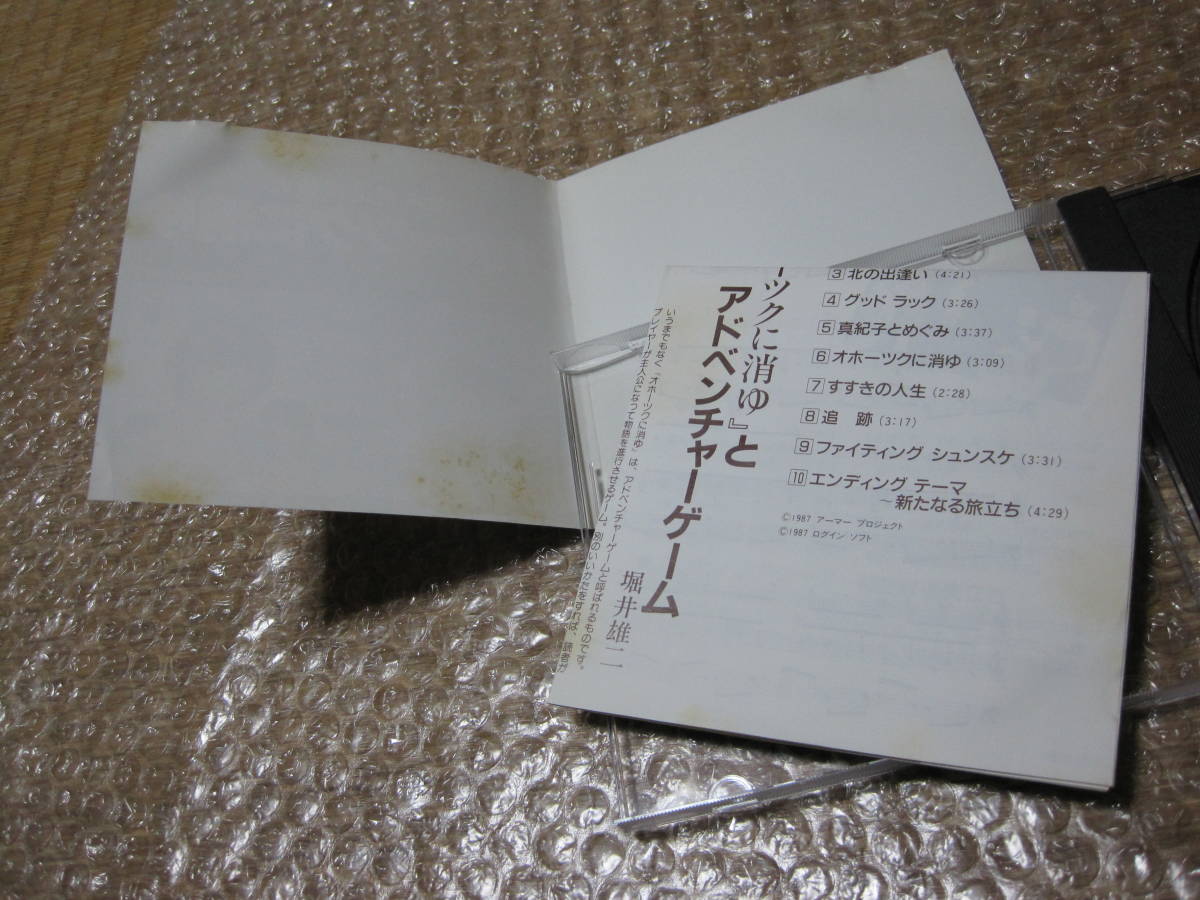 ーツクに消ゆ』と
アドベンチャーゲーム
堀井雄二
いうまでもなく『オホーツクに消ゆ』は、アドベンチャーゲームと呼ばれるものです。
プレイヤーが主人公になって物語を進行させるゲーム。別のいいかたをすれば、読者が
3 北の出逢い (4:21)
4 グッド ラック (3:26)
5 真紀子とめぐみ (3:37)
6 オホーツクに消ゆ (3:09)
7 すすきの人生 (2:28)
8 追 跡 (3:17)
9 ファイティング シュンスケ (3:31)
10 エンディング テーマ
～新たなる旅立ち (4:29)
©1987 アーマー プロジェクト
©1987 ログイン ソフト